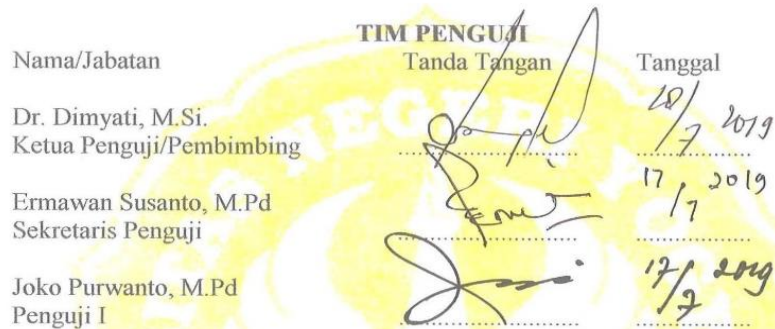 TIM PENGUJI
Nama/Jabatan Tanda Tangan Tanggal
Dr. Dimyati, M.Si.
Ketua Penguji/Pembimbing ........................ 18/7 2019
Ermawan Susanto, M.Pd
Sekretaris Penguji ........................ 17/7 2019
Joko Purwanto, M.Pd
Penguji I ........................ 17/7 2019